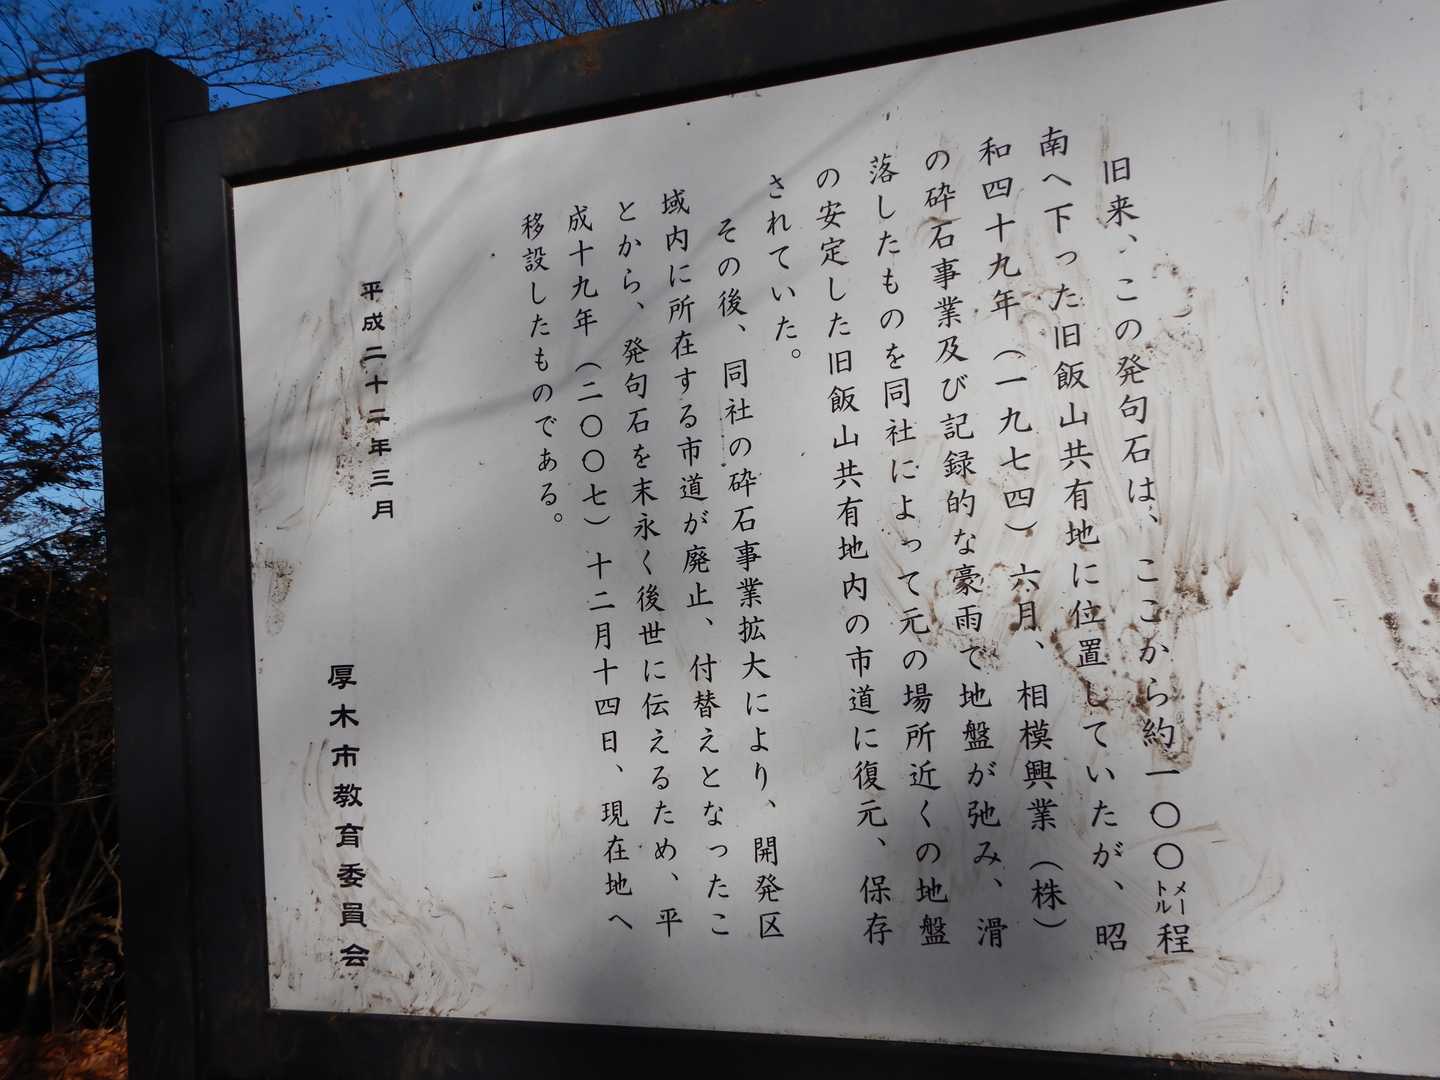 旧来、この発句石は、ここから約一〇〇㍍程
南へ下った旧飯山共有地に位置していたが、昭
和四十九年（一九七四）六月、相模興業（株）
の砕石事業及び記録的な豪雨で地盤が弛み、滑
落したものを同社によって元の場所近くの地盤
の安定した旧飯山共有地内の市道に復元、保存
されていた。
その後、同社の砕石事業拡大により、開発区
域内に所在する市道が廃止、付替えとなったこ
とから、発句石を末永く後世に伝えるため、平
成十九年（二〇〇七）十二月十四日、現在地へ
移設したものである。
平成二十二年三月
厚木市教育委員会